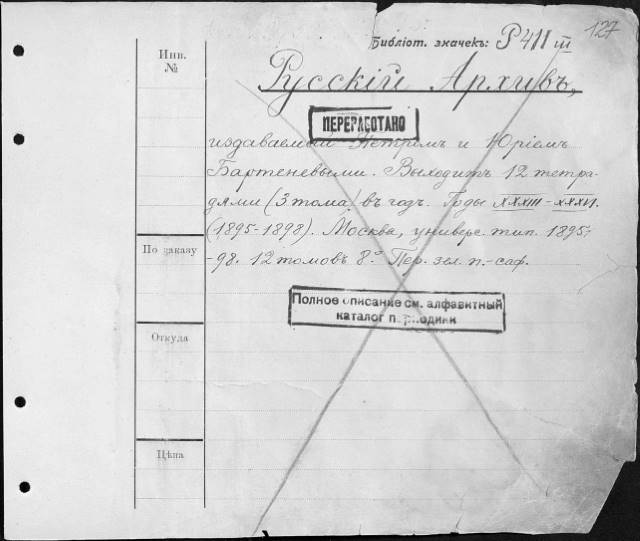 127
Библiот. значекъ: Р 411 III
Инв.
№
Русскiй Архивъ,
ПЕРЕРАБОТАНО
издаваемый Петромъ и Юрiемъ
Бартеневыми. Выходитъ 12 тетра-
дями (3 тома) въ годъ. Годы XXXIII-XXXVI.
(1895-1898). Москва, универс. тип. 1895-
-98. 12 томовъ 8º. Пер. зел. п.-саф.
По заказу
Полное описание см. алфавитный
каталог периодики
Откуда
Цѣна